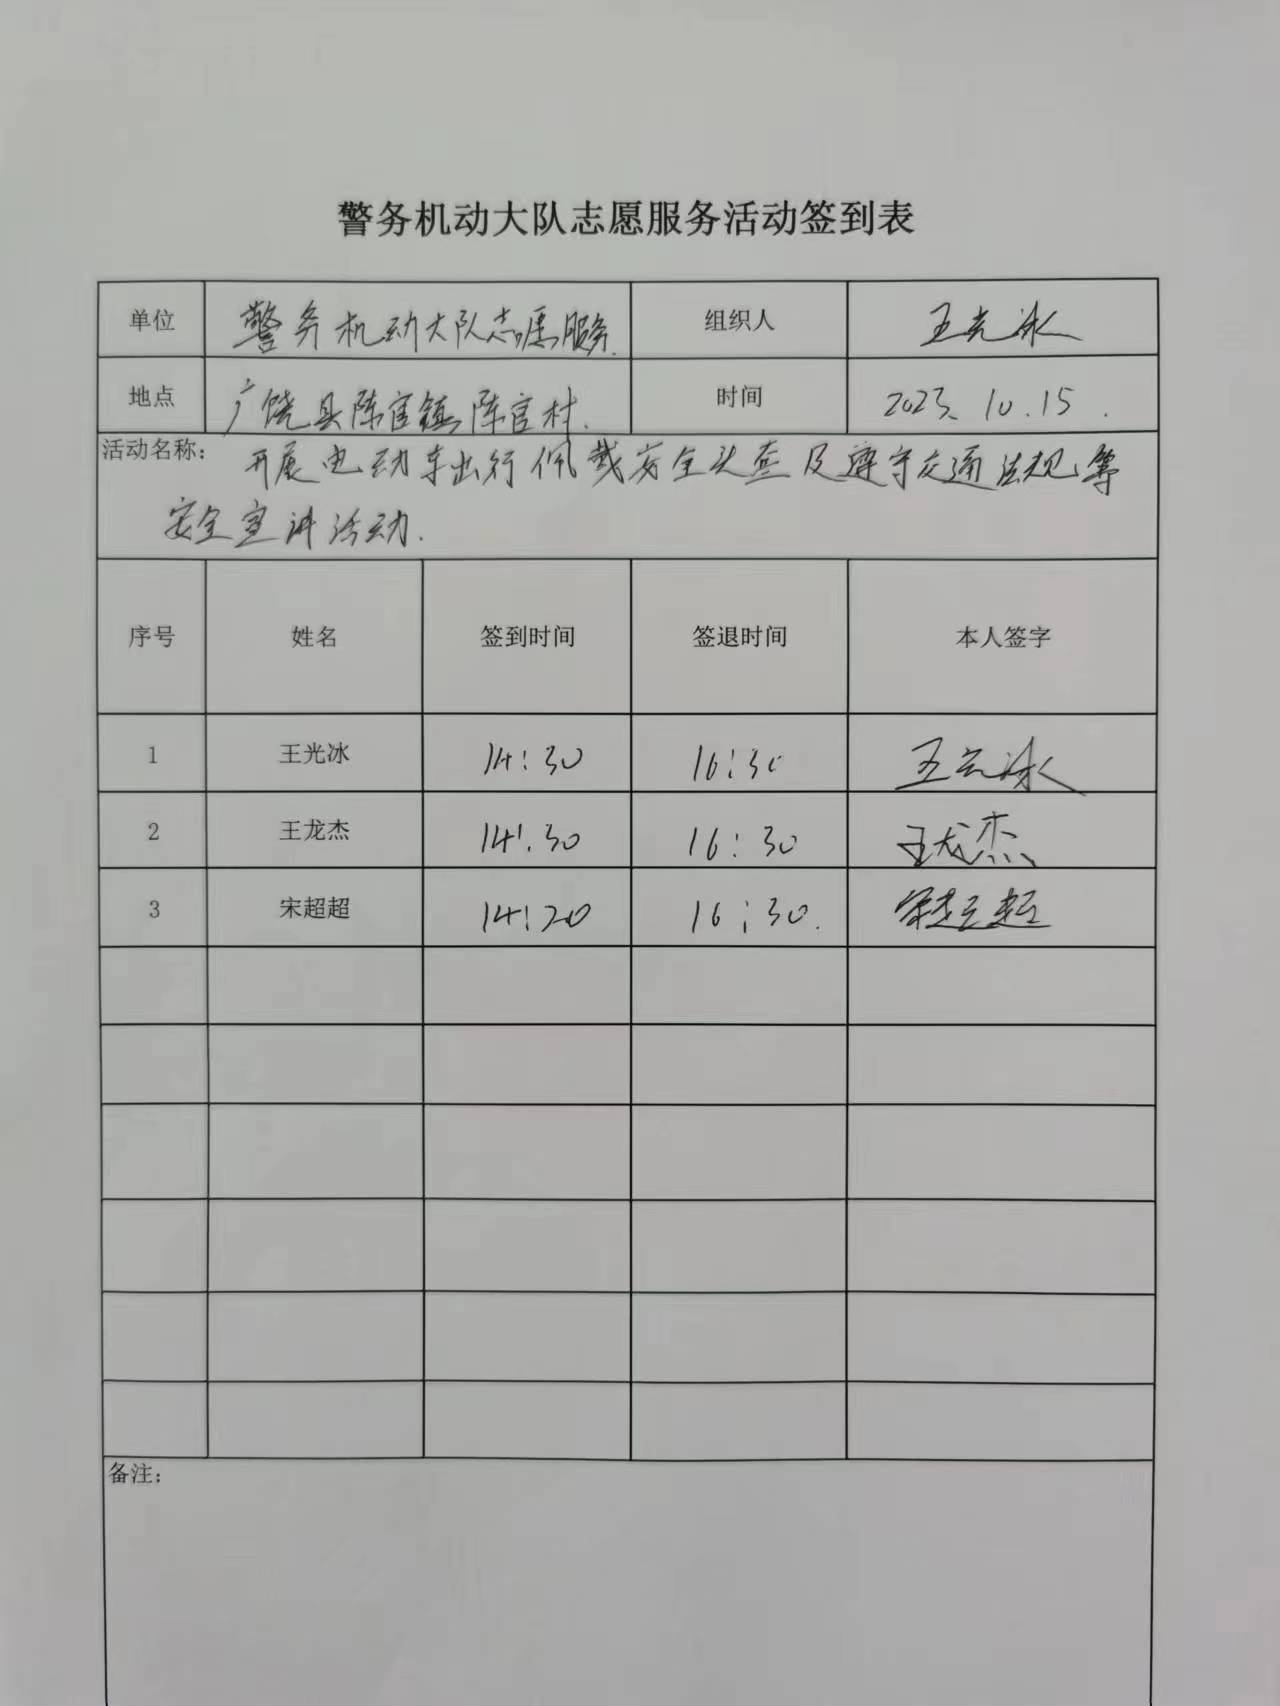 警务机动大队志愿服务活动签到表
单位 警务机动大队志愿服务. 组织人 王光冰
地点 广饶县陈官镇陈官村. 时间 2023.10.15.
活动名称: 开展电动车出行佩戴安全头盔及遵守交通法规等
安全宣讲活动.
序号 姓名 签到时间 签退时间 本人签字
1 王光冰 14:30 16:30 王光冰
2 王龙杰 14:30 16:30 王龙杰
3 宋超超 14:20 16:30. 宋超超
备注: